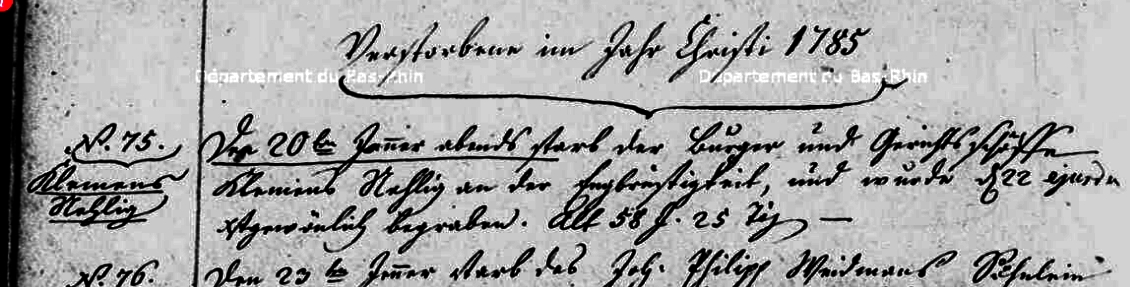 Verstorbene im Jahr Christi 1785
Département du Bas-Rhin Département du Bas-Rhin
N. 75. Den 20ten Jenner abends starb der Burger und Gerichtsschöffe
Klemens Klemens Nehlig an der Engbrüstigkeit, und wurde d 22 ejusdem
Nehlig begraben. Alt 58 J. 25 Tág
N. 76. Den 23ten Jenner starb des Joh. Philipp Weidmans Söhnlein